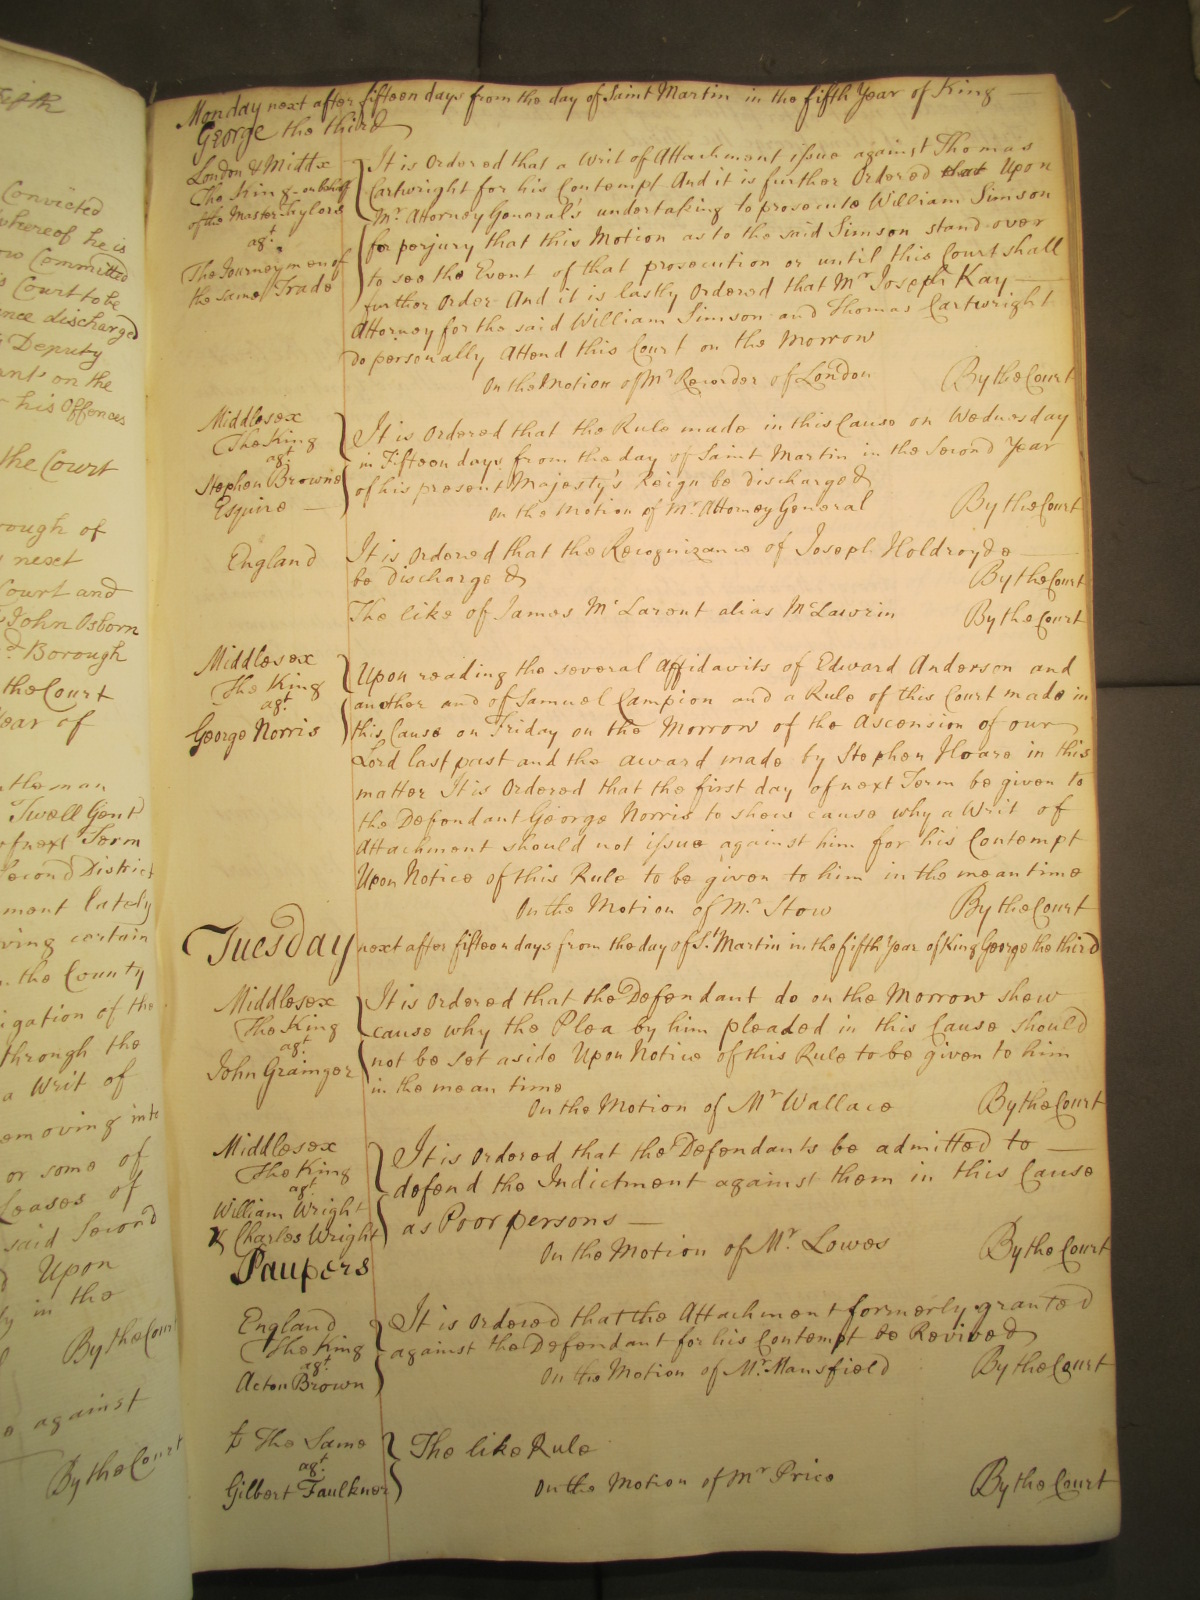 Fifth
Convicted
whereof he is
now Committed
s Court to be
nce discharged
Deputy
ants on the
his Offences
the Court
rough of
next
Court and
John Osborn
Borough
the Court
Year of
Twell Gent
of next Term
Second District
ment lately
ving certain
the County
igation of the
through the
a Writ of
emoving into
or some of
Leases of
said Second
Upon
in the
By the Court
against
By the Court
Monday next after fifteen days from the day of Saint Martin in the fifth Year of King
George the third
London & Middx
The King on behalf
of the Master Taylors
agt.
The Journeymen of
the same Trade
It is Ordered that a Writ of Attachment issue against Thomas
Cartwright for his Contempt And it is further Ordered that Upon
Mr. Attorney General's undertaking to prosecute William Simson
for perjury that this Motion as to the said Simson stand over
to see the Event of that prosecution or until this Court shall
further Order And it is lastly Ordered that Mr Joseph Kay
Attorney for the said William Simson and Thomas Cartwright
do personally Attend this Court on the Morrow
On the Motion of Mr Recorder of London By the Court
Middlesex
The King
agt.
Stephen Browne
Esquire
It is Ordered that the Rule made in this Cause on Wednesday
in Fifteen days from the day of Saint Martin in the Second Year
of his present Majesty's Reign be discharged
On the Motion of Mr. Attorney General By the Court
England It is Ordered that the Recognizance of Joseph Holdroyde
be discharged By the Court
The like of James Mc Laront alias Mc Lawrin By the Court
Middlesex
The King
agt.
George Norris
Upon reading the several Affidavits of Edward Anderson and
another and of Samuel Campion and a Rule of this Court made in
this Cause on Friday on the Morrow of the Ascension of our
Lord last past and the award made by Stephen Hoare in this
matter It is Ordered that the first day of next Term be given to
the Defendant George Norris to shew cause why a Writ of
Attachment should not issue against him for his Contempt
Upon Notice of this Rule to be given to him in the mean time
On the Motion of Mr. Stow By the Court
Tuesday next after fifteen days from the day of St Martin in the fifth Year of King George the third
Middlesex
The King
agt.
John Grainger
It is Ordered that the Defendant do on the Morrow shew
cause why the Plea by him pleaded in this Cause should
not be set aside Upon Notice of this Rule to be given to him
in the mean time
On the Motion of Mr Wallace By the Court
Middlesex
The King
agt.
William Wright
& Charles Wright
Paupers
It is Ordered that the Defendants be admitted to
defend the Indictment against them in this Cause
as Poor persons
On the Motion of Mr. Lowes By the Court
England
The King
agt.
Acton Brown
It is Ordered that the Attachment formerly granted
against the Defendant for his Contempt be Revived
On the Motion of Mr. Mansfield By the Court
The Same
agt.
Gilbert Faulkner
The like Rule
On the Motion of Mr Price By the Court